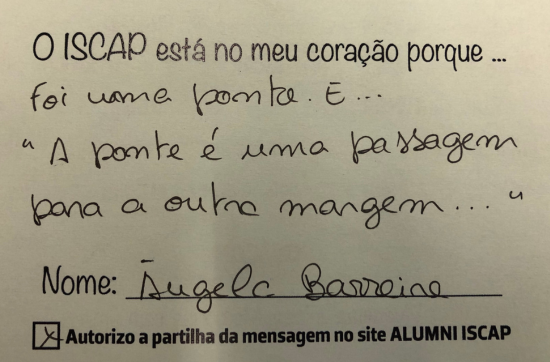 O ISCAP está no meu coração porque ...
foi uma ponte. E...
"A ponte é uma passagem
para a outra margem..."
Nome: Ângela Barreira
Autorizo a partilha da mensagem no site ALUMNI ISCAP